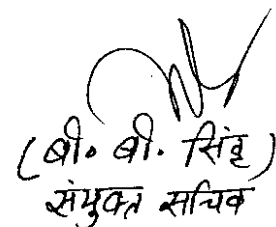 (बी. बी. सिंह)
संयुक्त सचिव